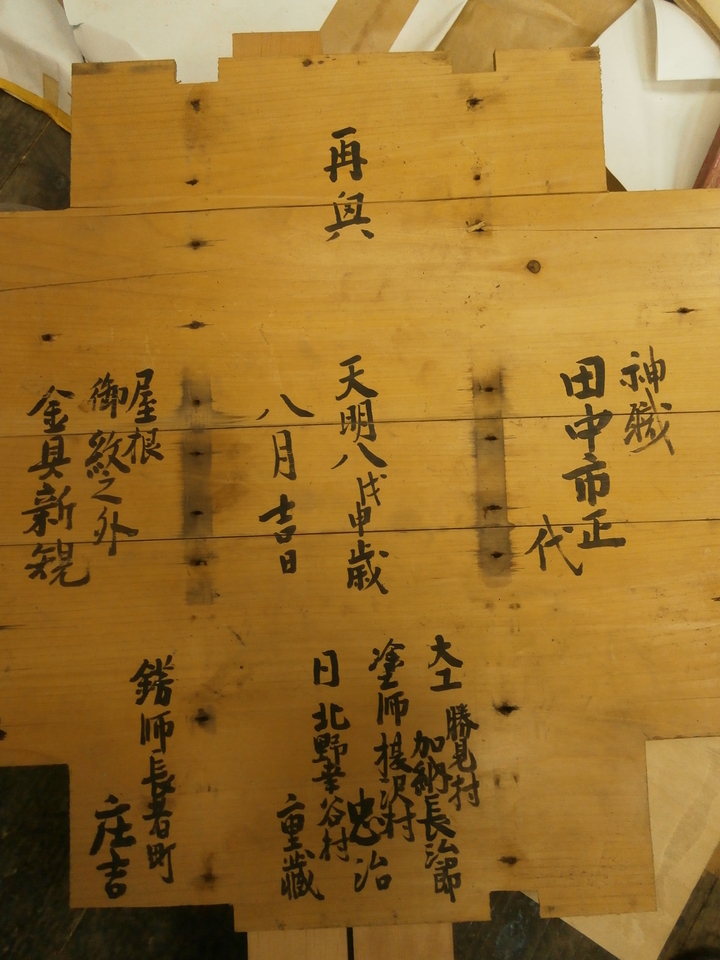 再興
神職
田中市正
代
天明八戊申歳
八月吉日
屋根
御紋之外
金具新規
大工 勝見村
加納長治郎
塗師
忠治
日 北野幸谷村
重藏
錺師長者町
庄吉